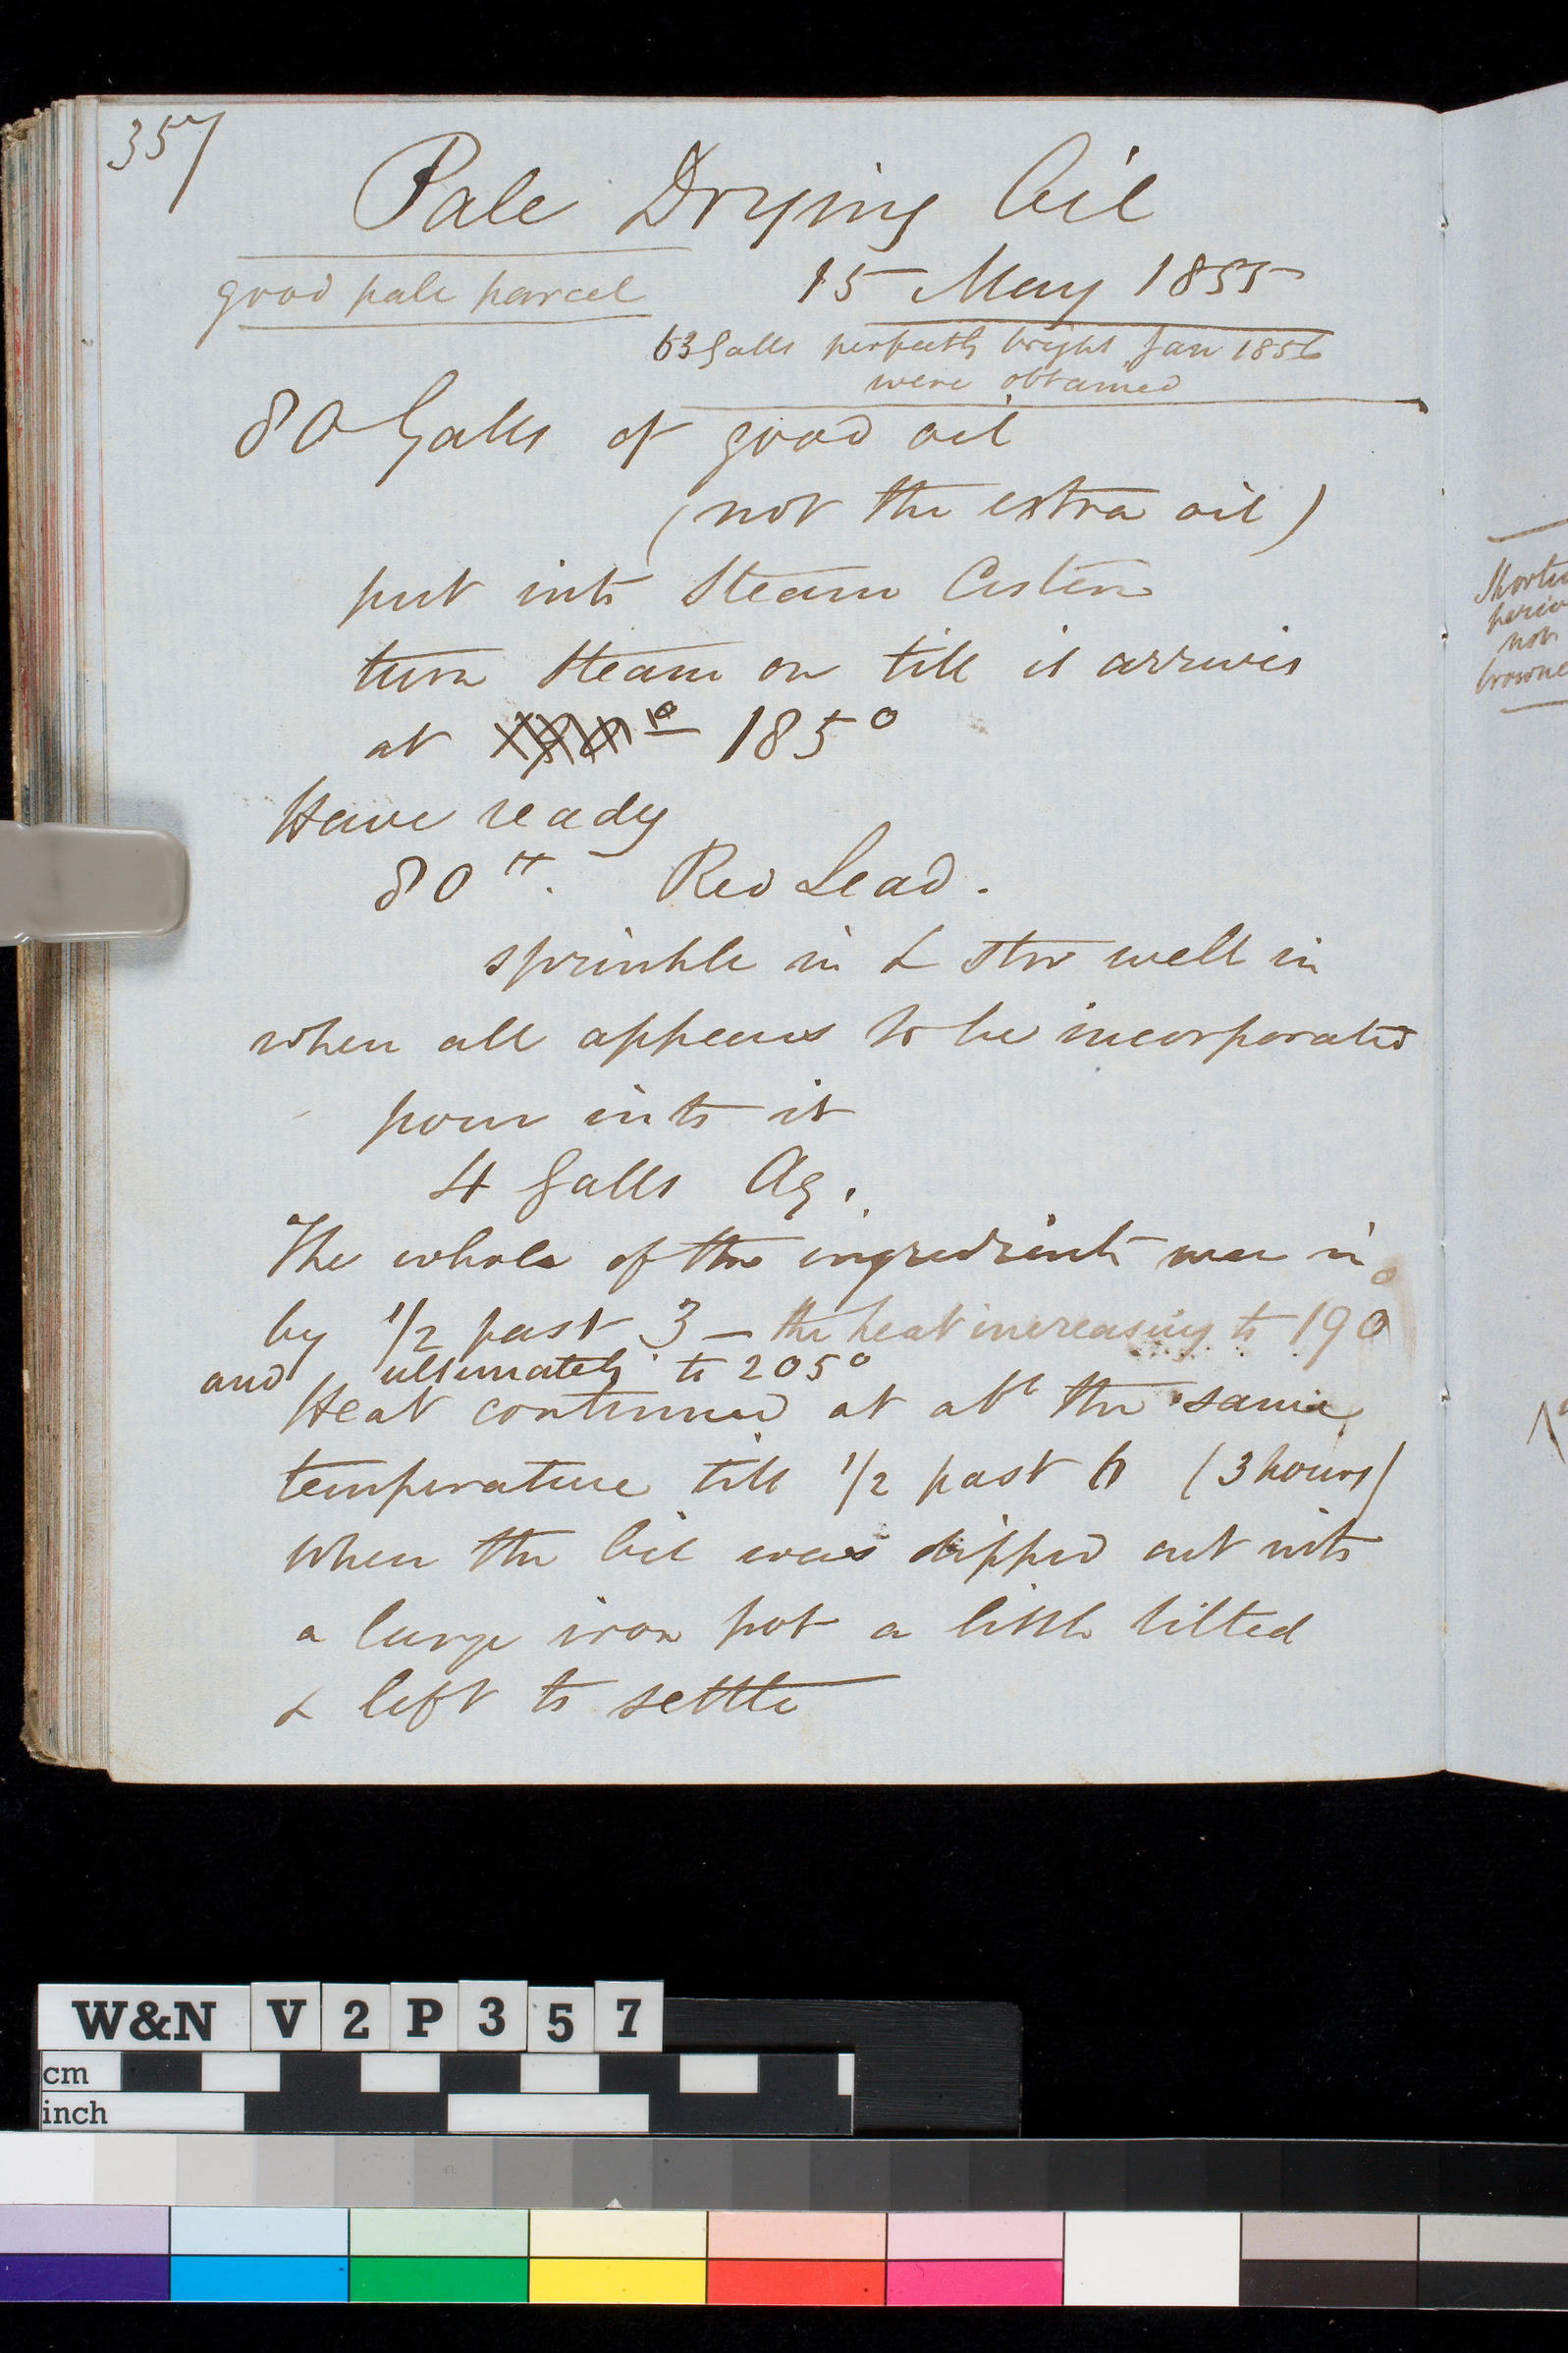 357
Pale Drying Oil
good pale parcel
15 May 1855
63 Galls perfectly bright Jan 1856
were obtained
80 Galls of good oil
(not the extra oil)
put into Steam Cistern
turn Steam on till it arrives
at 185°
Have ready
80 lb. Red Lead.
sprinkle in & stir well in
when all appears to be incorporated
pour into it
4 Galls Aq.
The whole of the ingredients were in
by 1/2 past 3 — the heat increasing to 190°
and ultimately to 205°
Heat continued at abt the same
temperature till 1/2 past 6 (3 hours)
When the Oil was dipped out into
a large iron pot a little tilted
& left to settle
W&N V2P357
cm
inch